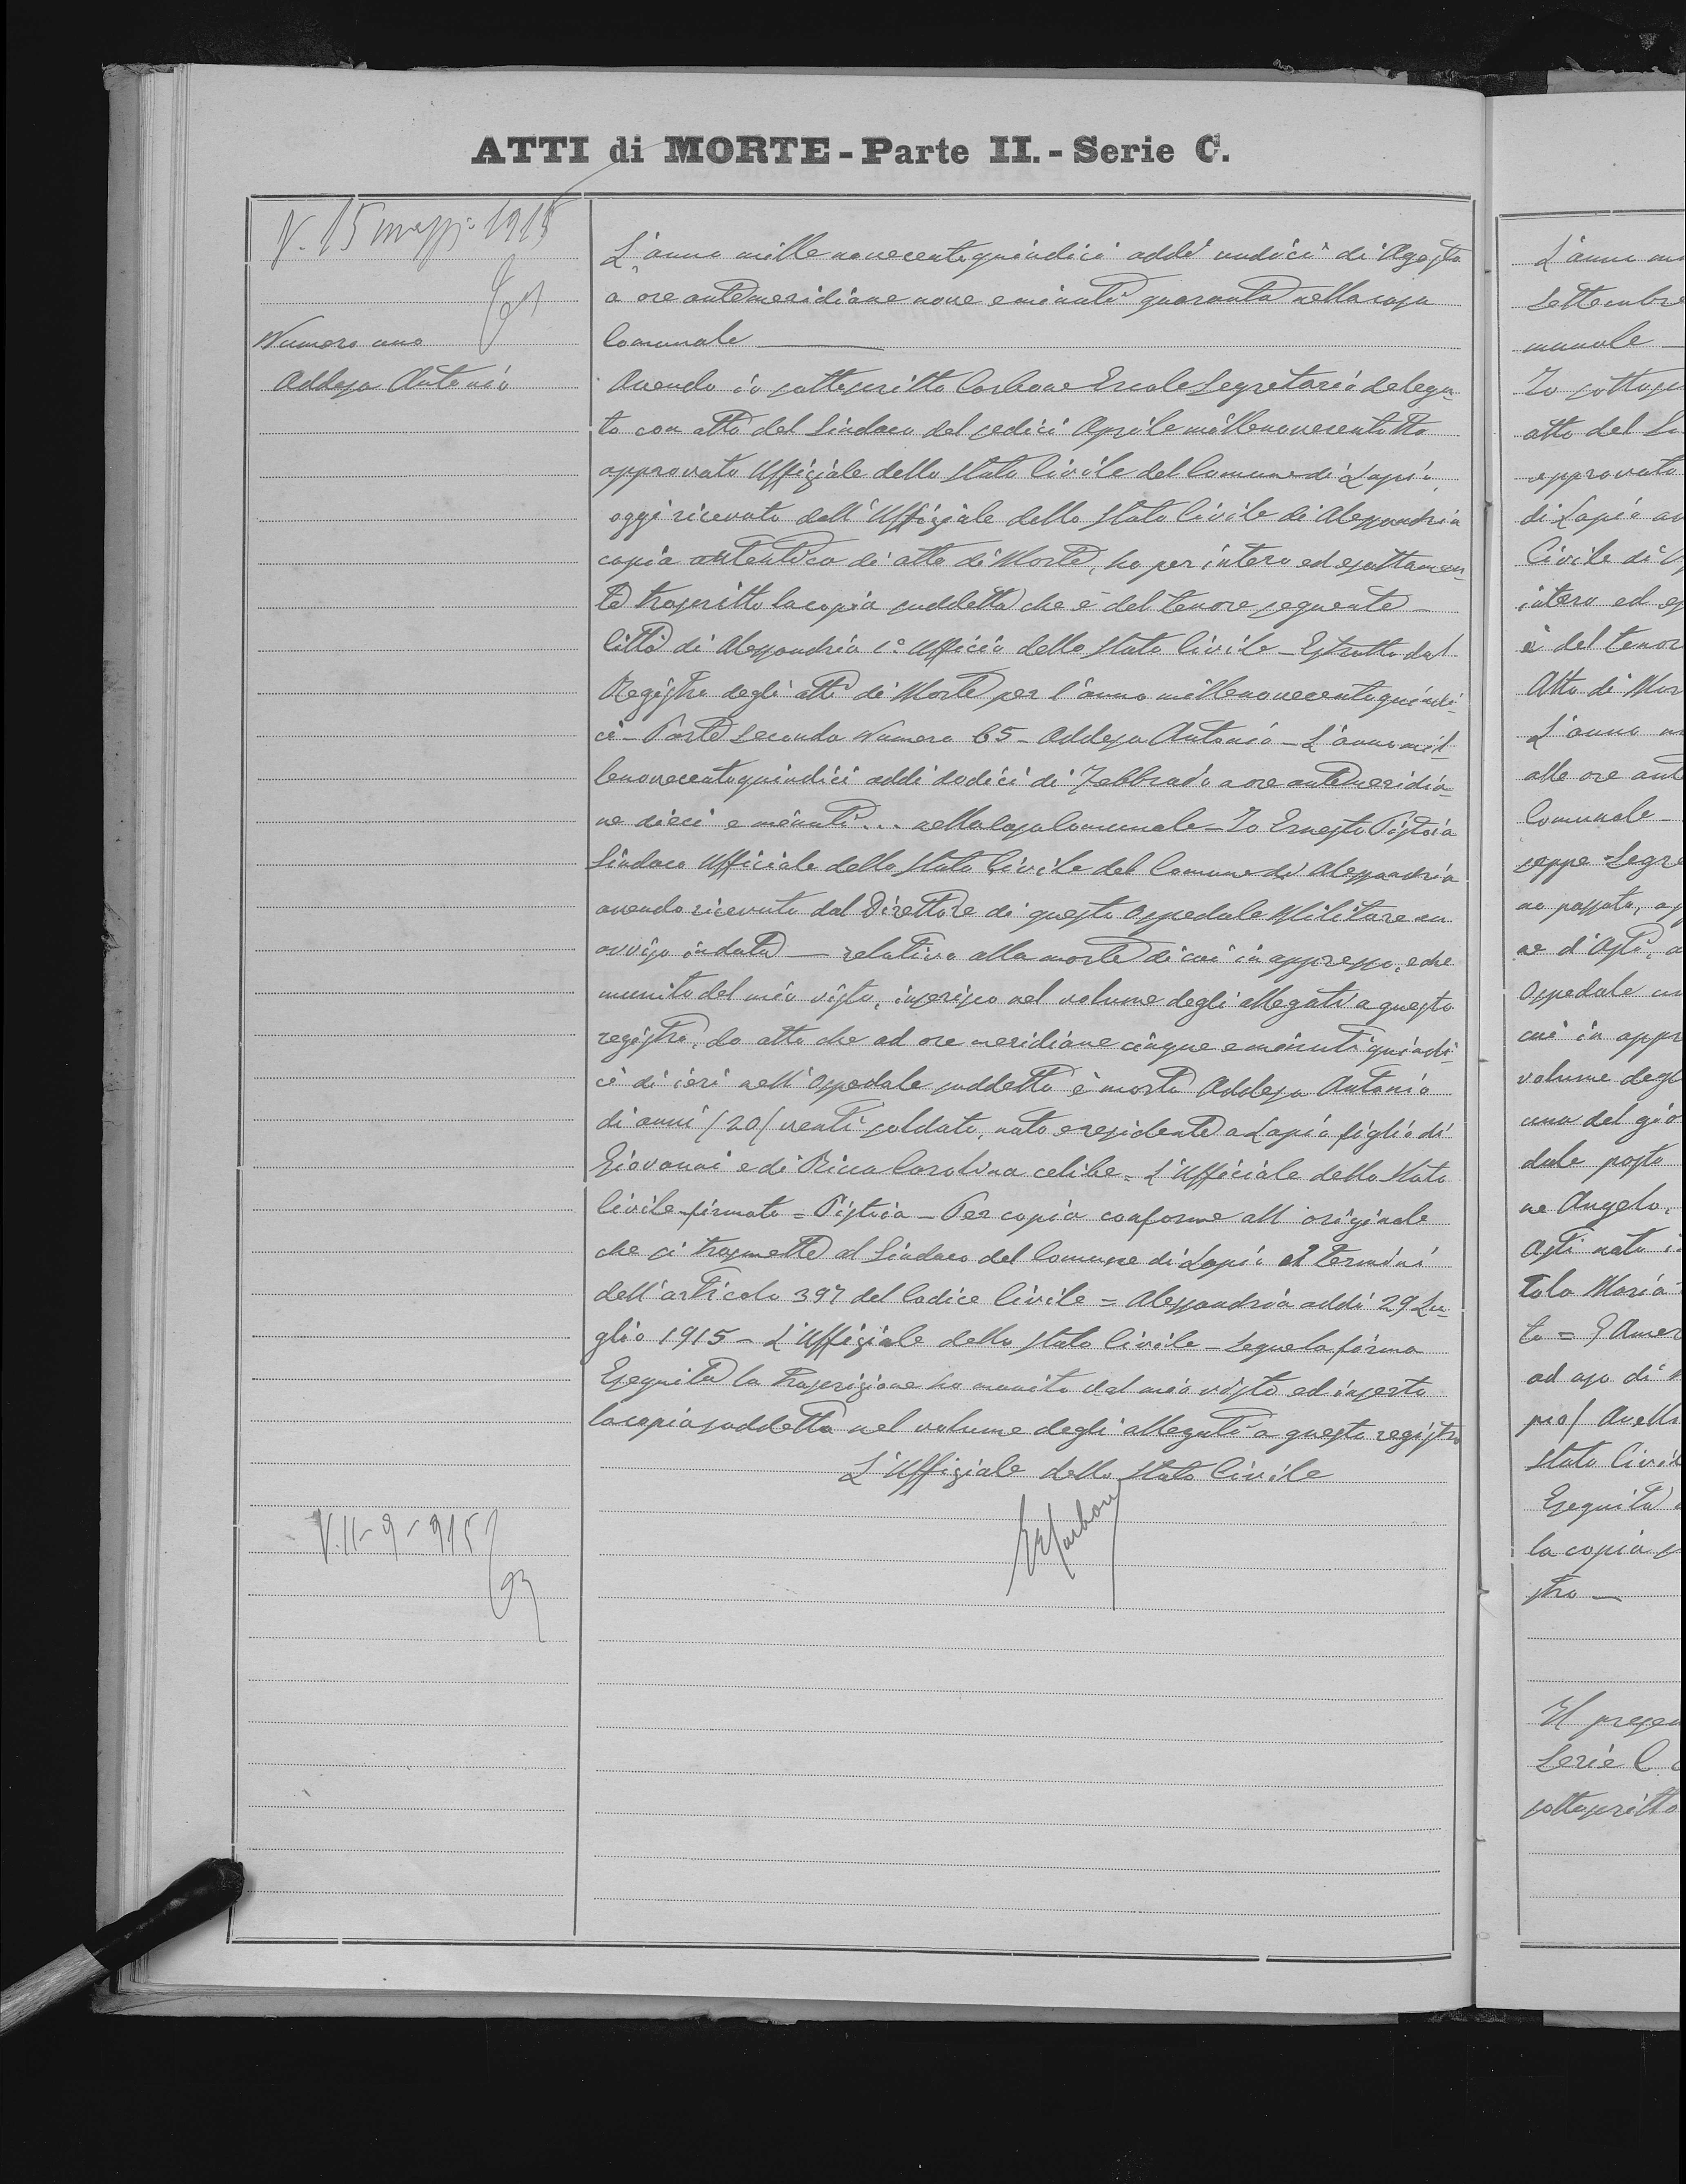 ATTI di MORTE - Parte II. - Serie C.
V. 15 maggio 1915
Numero uno
Addesa Antonio
L'anno mille novecentoquindici addì undici di Agosto
a ore antimeridiane nove e minuti quaranta nella casa
Comunale
Avendo io sottoscritto Carbone Ercole Segretario delega-
to con atto del Sindaco del sedici Aprile millenovecentotto
approvato Uffiziale dello Stato Civile del Comune di Lapio,
oggi ricevuto dall'Uffiziale dello Stato Civile di Alessandria
copia autentica di atto di Morte, ho per intero ed esattamen-
te trascritto la copia suddetta che è del tenore seguente -
Città di Alessandria 1° Ufficio dello Stato Civile - Estratto dal
Registro degli atti di Morte per l'anno millenovecentoquindi-
ci - Parte Seconda Numero 65 - Addesa Antonio - L'anno mil-
lenovecentoquindici addi dodici di Febbraio a ore antimeridia-
ne dieci e minuti ... nella Casa Comunale - Io Ernesto Pistoia
Sindaco Ufficiale dello Stato Civile del Comune di Alessandria
avendo ricevuto dal Direttore di questo Ospedale Militare un
avviso in data — relativo alla morte di cui in appresso, e che
munito del mio visto, inserisco nel volume degli allegati a questo
registro, do atto che ad ore meridiane cinque e minuti quindi-
ci di ieri nell'Ospedale suddetto è morto Addesa Antonio
di anni (20) venti soldato, nato e residente a Lapio figlio di
Giovanni e di Ricca Carolina celibe = L'Ufficiale dello Stato
Civile firmato = Pistoia - Per copia conforme all'originale
che si trasmette al Sindaco del Comune di Lapio ai termini
dell'articolo 397 del Codice Civile = Alessandria addì 29 Lu-
glio 1915 - L'Uffiziale dello Stato Civile - Segue la firma
Eseguita la trascrizione ho munito del mio visto ed inserto
la copia suddetta nel volume degli allegati a questo registro
L'Uffiziale dello Stato Civile
Er Carbone
V. 11 - 9 - 915
L'anno
Settembre
munale
Io sottosc
atto del Si
approvato
di Lapio av
Civile di
intero ed es
è del tenor
Atto di Mor
L'anno m
alle ore ant
Comunale -
seppe - Segre
no passato, ap
ne d'Asti, a
Ospedale
cui in appr
volume degl
una del gio
dale posto
ne Angelo,
Asti nato
tola Maria
to = ad uso di
pio) Avell
Stato Civil
Eseguita
la copia s
stro —
Il presen
Serie C.
sottoscritto